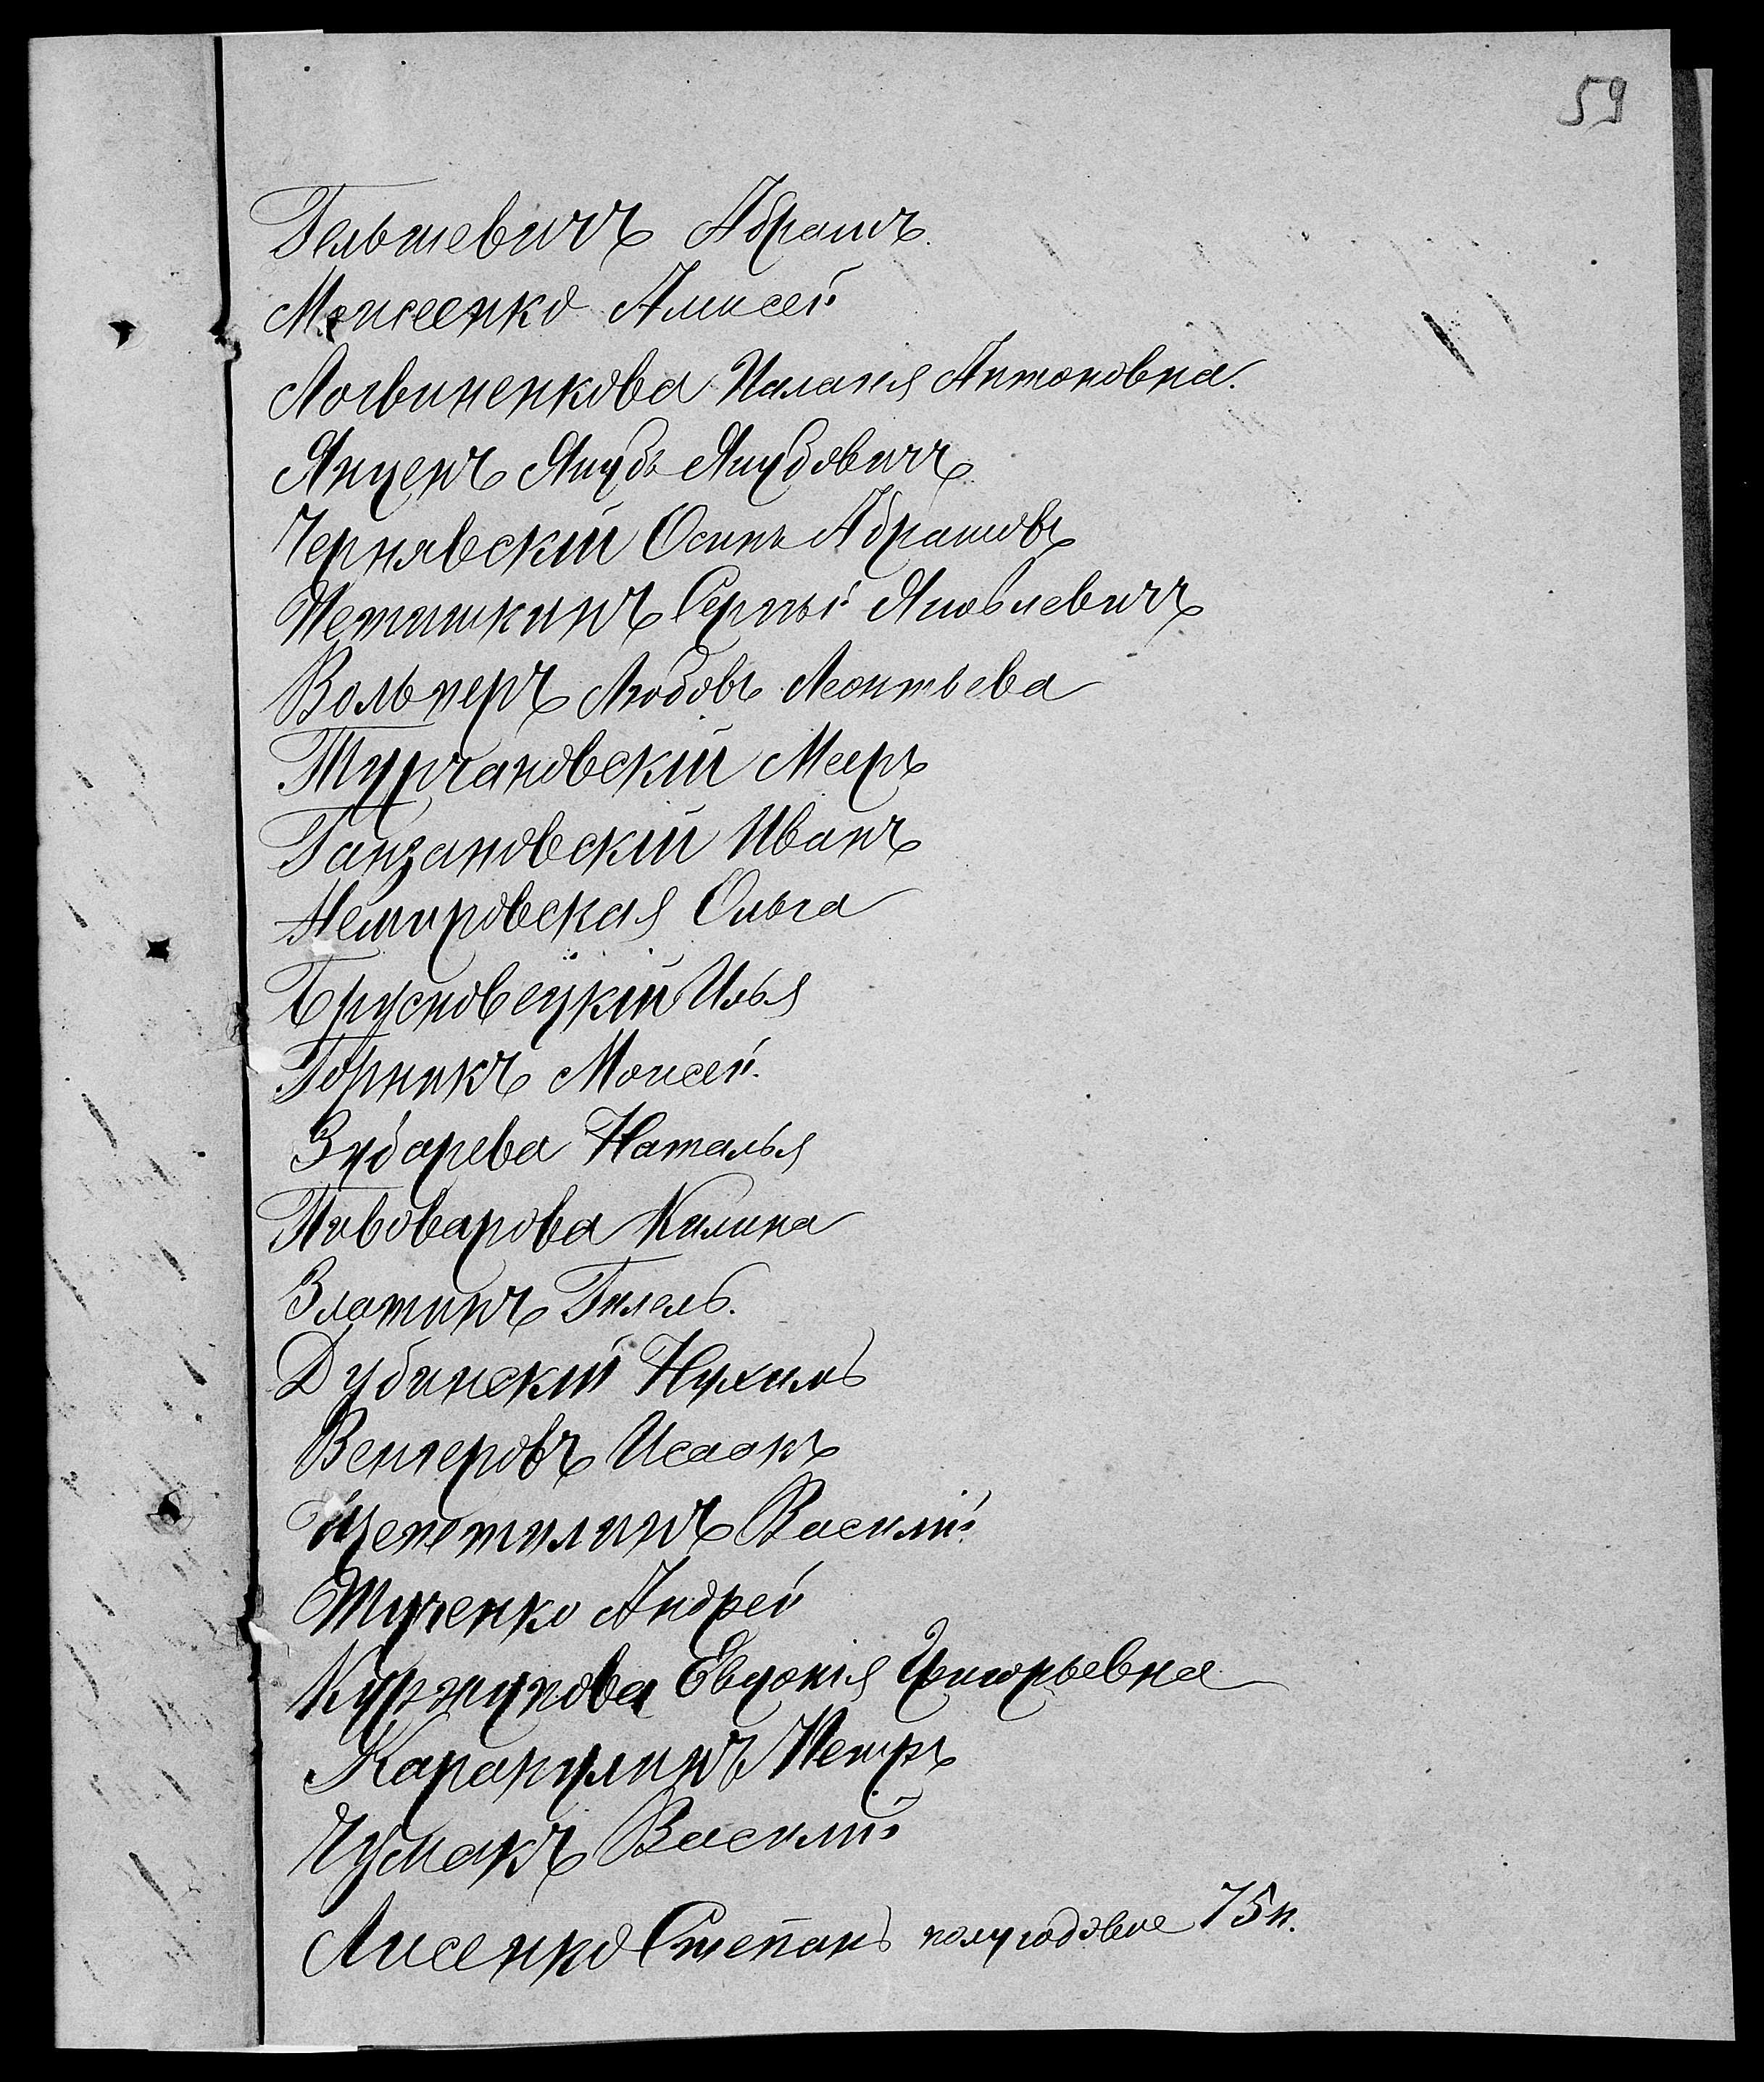 59
Гельшевичъ Абрамъ.
Моисеенко Алексей
Логвиненкова Палагея Антоновна.
Янценъ Якубъ Якубовичъ.
Чернявскій Осипъ Абрамовъ
Петишкинъ Сергѣй Яковлевичъ
Вольперъ Любовь Леонтьева
Турчановскій Мееръ
Ганзановскій Иванъ
Немировская Ольга
Брусновецкій Илья
Горникъ Моисей.
Зубарева Наталья
Пивоварова Килина
Златинъ Гилель.
Дубинскій Нухимъ
Венгеровъ Исаакъ
Щепотилинъ Василій
Тученко Андрей
Куржупова Евдокія Григорьевна
Каракулинъ Петръ
Чумакъ Василій
Лисенко Степанъ полугодовое 75 к.